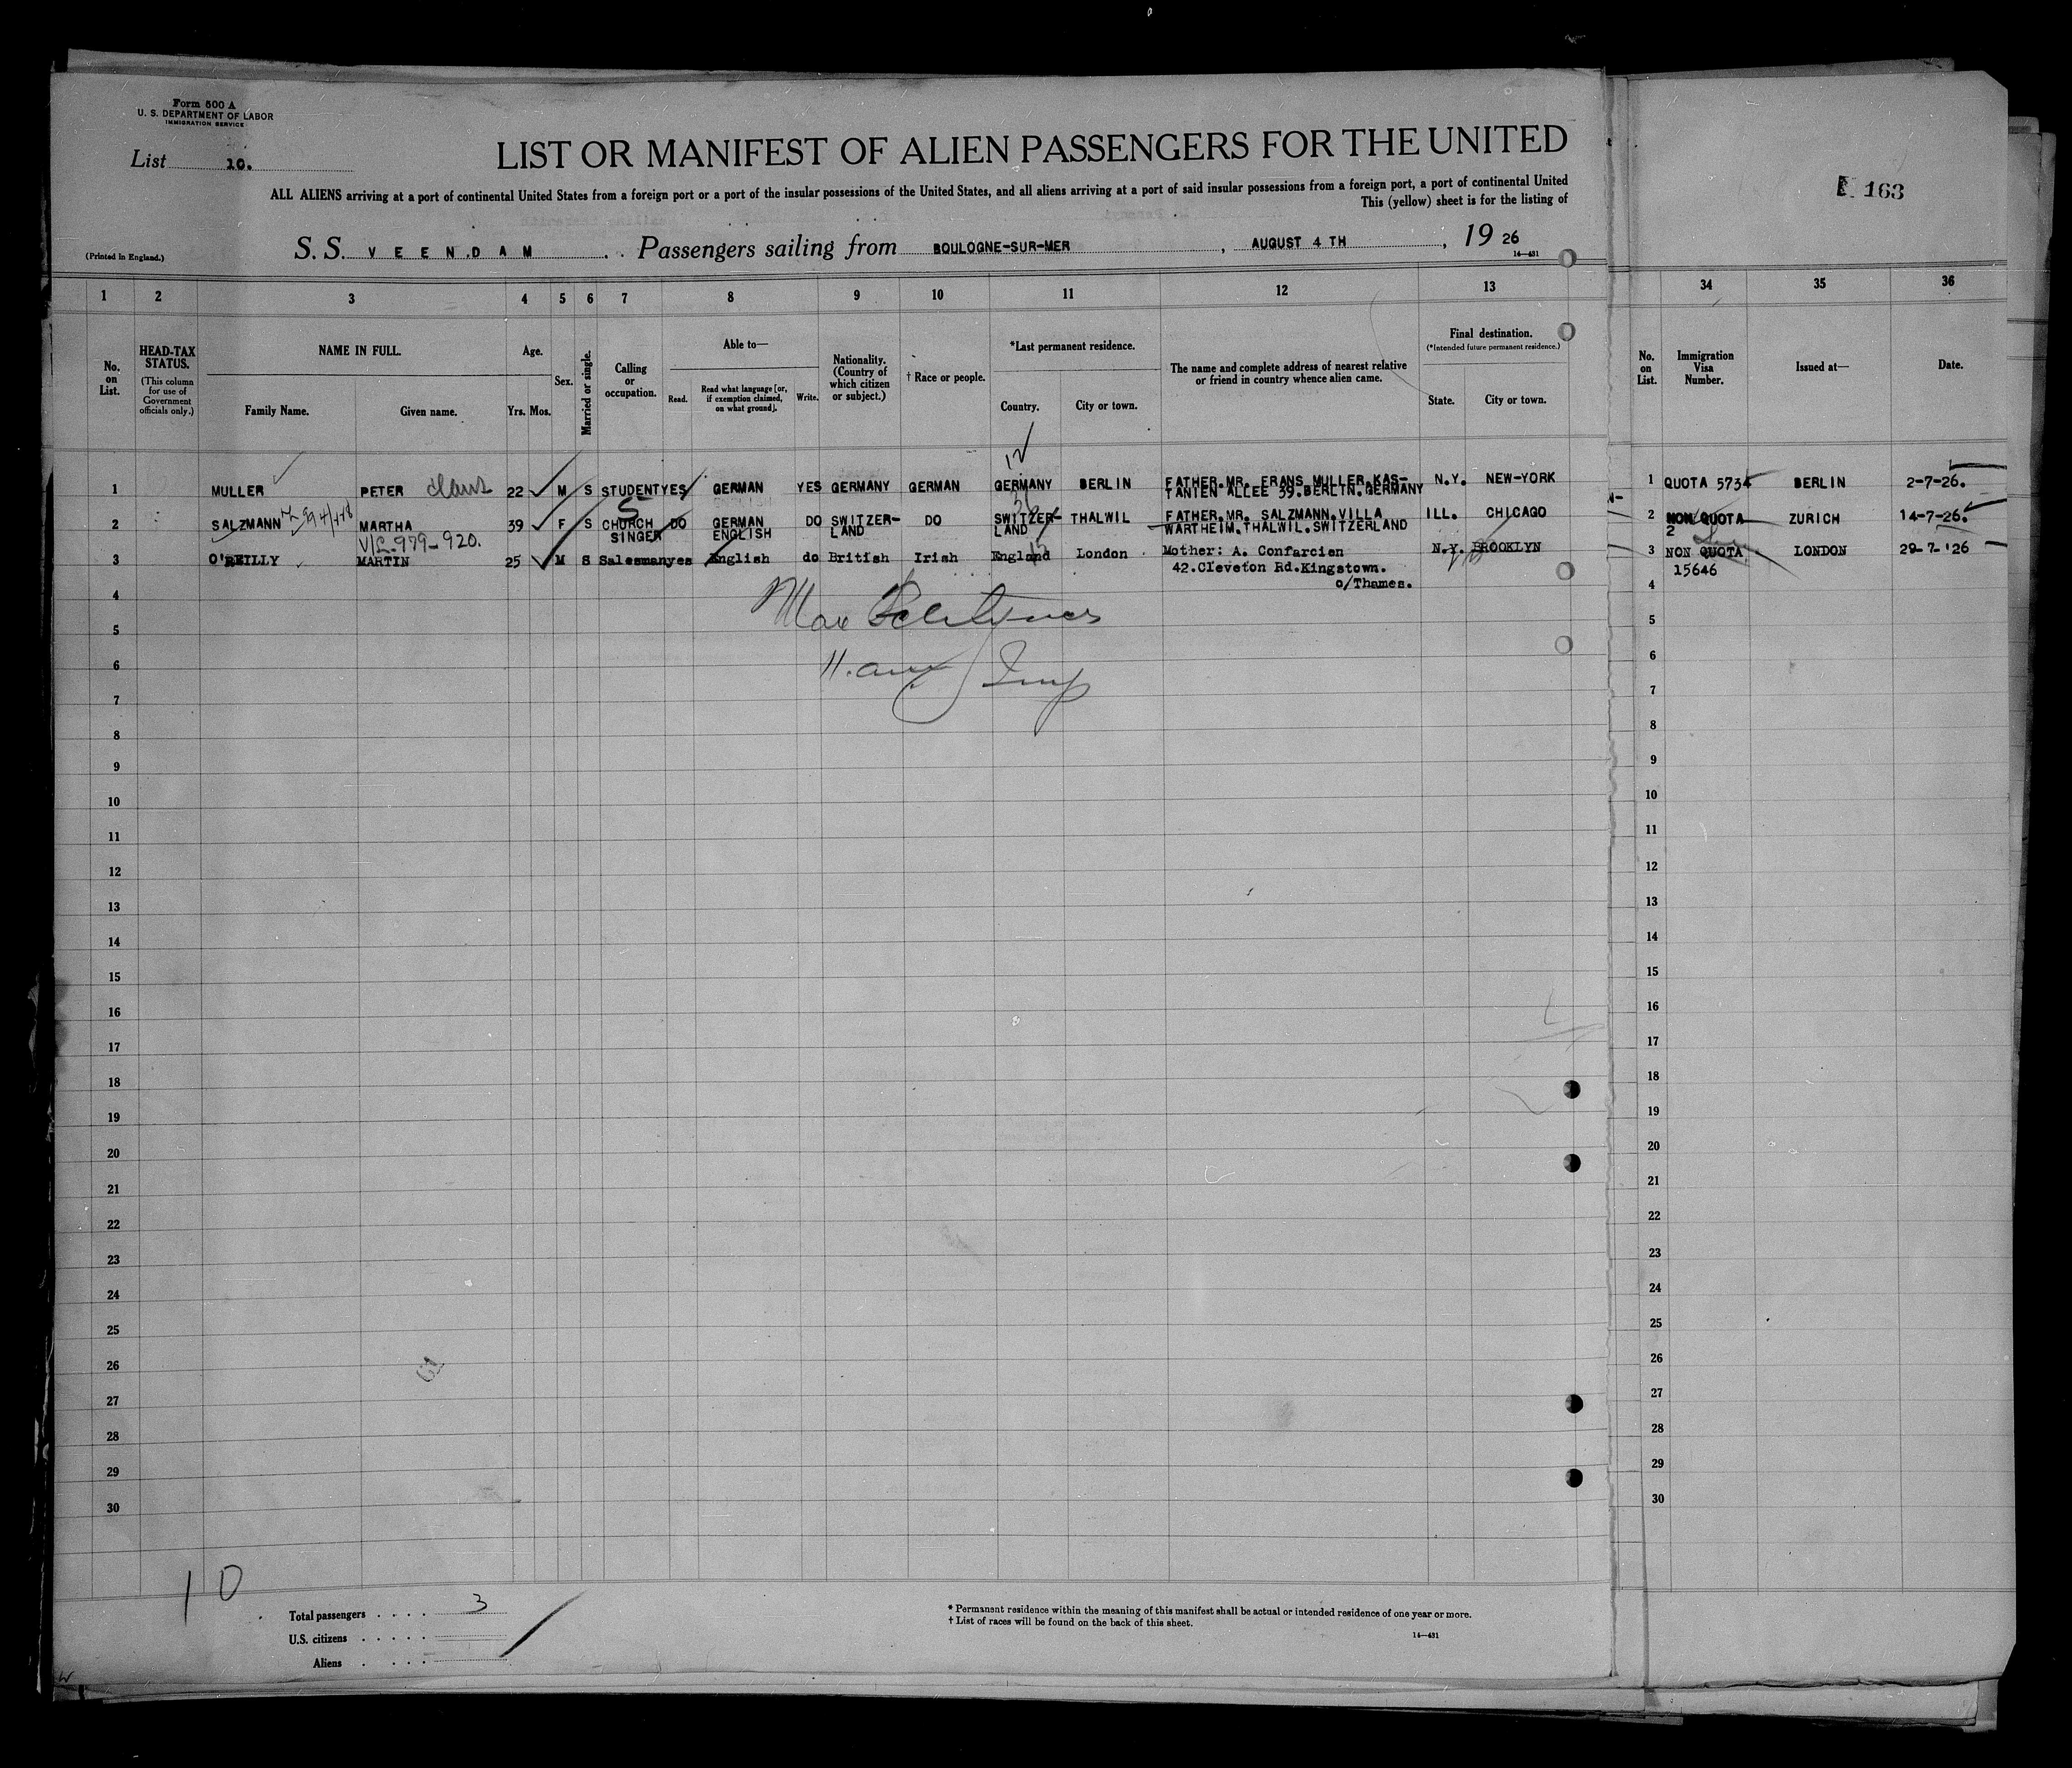 Form 500 A
U. S. DEPARTMENT OF LABOR
IMMIGRATION SERVICE
List 10.
LIST OR MANIFEST OF ALIEN PASSENGERS FOR THE UNITED
ALL ALIENS arriving at a port of continental United States from a foreign port or a port of the insular possessions of the United States, and all aliens arriving at a port of said insular possessions from a foreign port, a port of continental United
This (yellow) sheet is for the listing of
163
(Printed in England.)
S. S. VEENDAM Passengers sailing from BOULOGNE-SUR-MER, AUGUST 4 TH, 19 26
14—431
1 2 3 4 5 6 7 8 9 10 11 12 13 34 35 36
No. on List.
HEAD-TAX STATUS.
(This column for use of Government officials only.)
NAME IN FULL.
Family Name. Given name.
Age.
Yrs. Mos.
Sex.
Married or single.
Calling or occupation.
Able to—
Read. Read what language [or, if exemption claimed, on what ground]. Write.
Nationality. (Country of which citizen or subject.)
† Race or people.
*Last permanent residence.
Country. City or town.
The name and complete address of nearest relative or friend in country whence alien came.
Final destination.
(*Intended future permanent residence.)
State. City or town.
No. on List.
Immigration Visa Number.
Issued at—
Date.
12
1 MULLER PETER Claus 22 M S STUDENT YES GERMAN YES GERMANY GERMAN GERMANY BERLIN FATHER.MR. FRANS MULLER.KAS- N.Y. NEW-YORK 1 QUOTA 5734 BERLIN 2-7-26.
TANIEN ALLEE 39.BERLIN.GERMANY
S
2 SALZMANN MARTHA 39 F S CHURCH DO GERMAN DO SWITZER- DO SWITZER- THALWIL FATHER.MR. SALZMANN.VILLA ILL. CHICAGO 2 NON QUOTA ZURICH 14-7-26.
SINGER ENGLISH LAND LAND WARTHEIM.THALWIL.SWITZERLAND 2
979-920.
3 O'REILLY MARTIN 25 M S Salesman yes English do British Irish England London Mother: A. Confarcien N.Y. BROOKLYN 3 NON QUOTA LONDON 29-7-'26
42.Cleveton Rd.Kingstown. 15646
o/Thames.
4 4
5 5
6 6
7 7
8 8
9 9
10 10
11 11
12 12
13 13
14 14
15 15
16 16
17 17
18 18
19 19
20 20
21 21
22 22
23 23
24 24
25 25
26 26
27 27
28 28
29 29
30 30
10
Total passengers 3
U.S. citizens
Aliens
* Permanent residence within the meaning of this manifest shall be actual or intended residence of one year or more.
† List of races will be found on the back of this sheet.
14—431